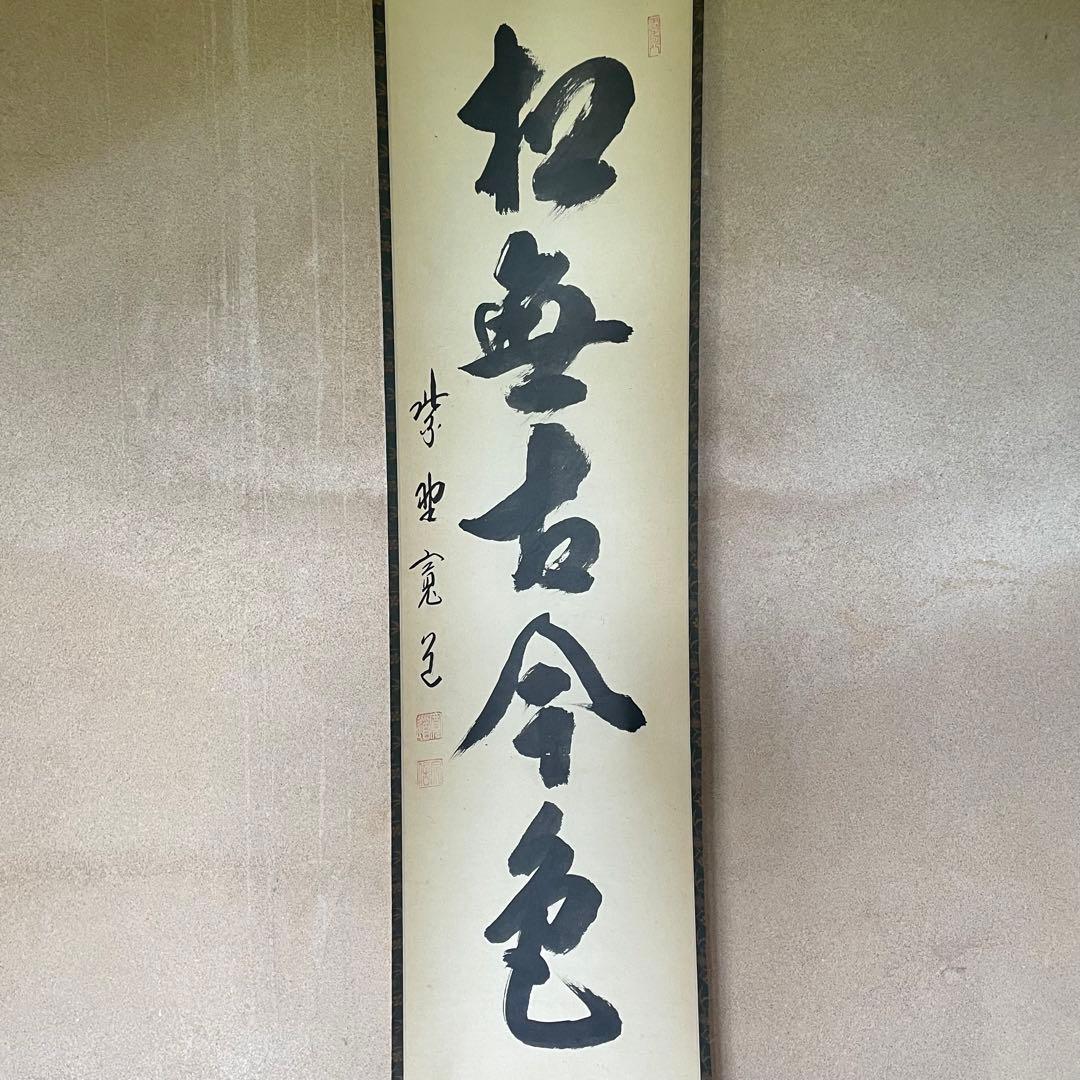 松無古今色
紫野寛道